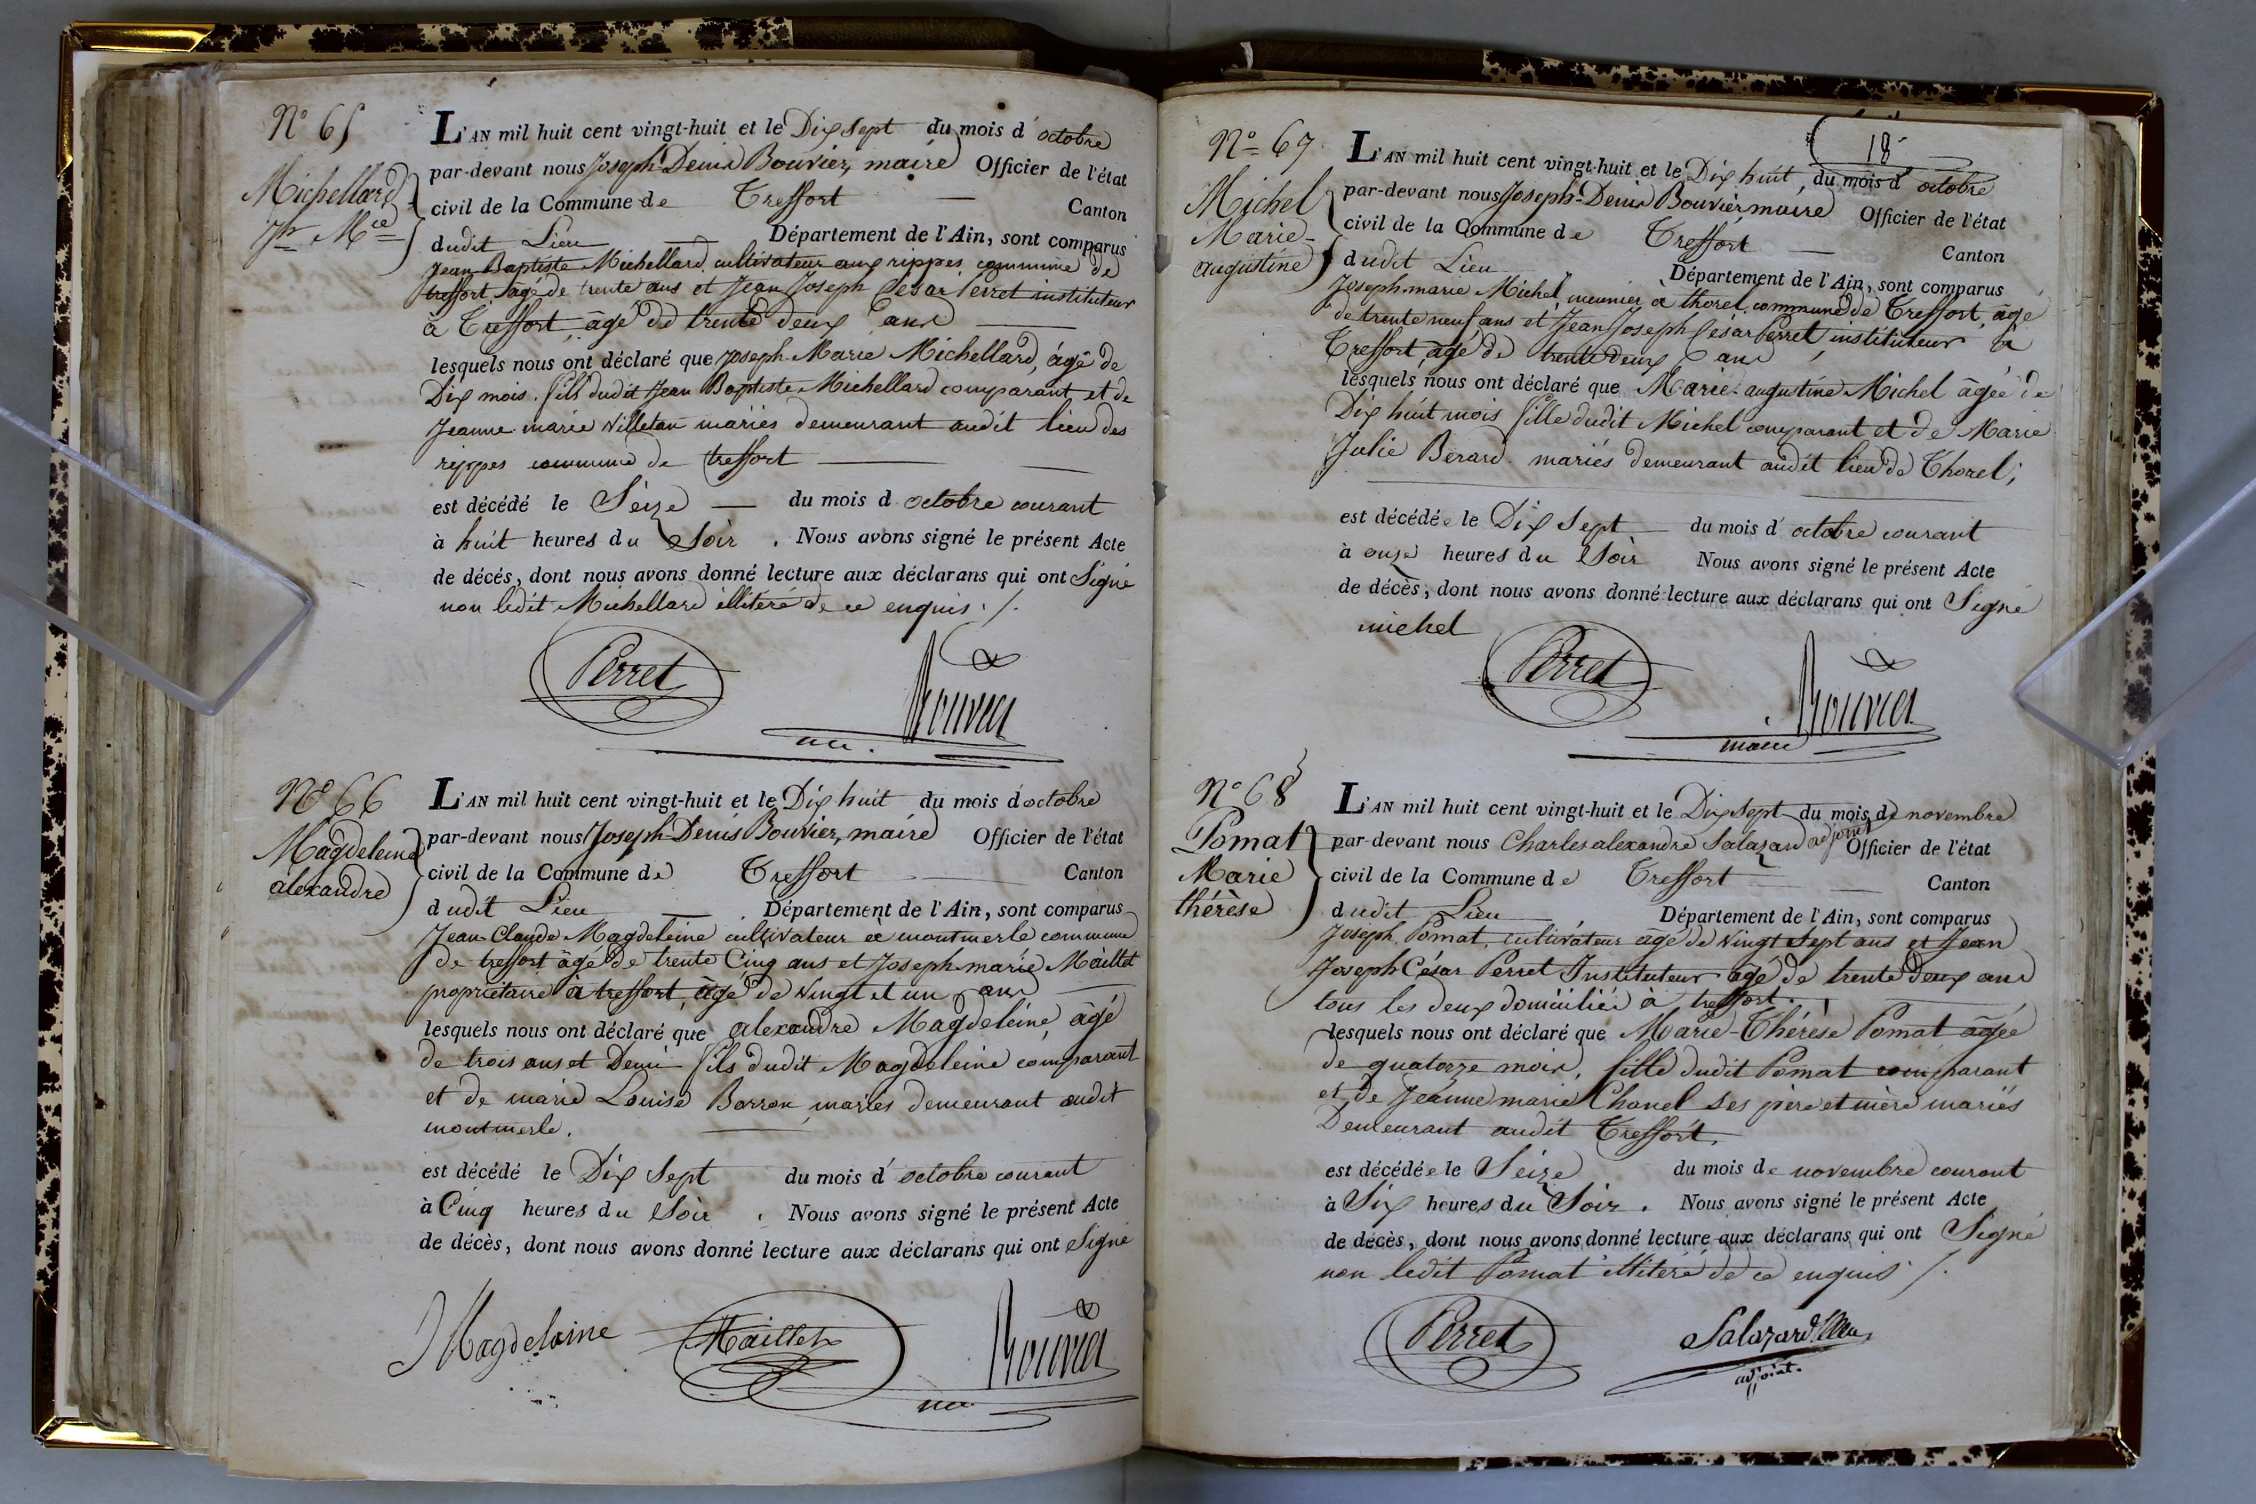 N° 65
Michellard
Jh Mie
L'AN mil huit cent vingt-huit et le Dix sept du mois d'octobre
par-devant nous Joseph-Denis Bouvier, maire Officier de l'état
civil de la Commune de Treffort Canton
dudit Lieu Département de l'Ain, sont comparus
Jean Baptiste Michellard cultivateur aux rippes commune de
treffort âgé de trente ans et Jean Joseph César Perret instituteur
à Treffort, âgé de trente deux ans
lesquels nous ont déclaré que Joseph Marie Michellard, âgé de
Dix mois, fils dudit Jean Baptiste Michellard comparant et de
Jeanne marie Villetan mariés demeurant audit lieu des
rippes commune de treffort
est décédé le Seize du mois d octobre courant
à huit heures du Soir. Nous avons signé le présent Acte
de décés, dont nous avons donné lecture aux déclarans qui ont Signé
non ledit Michellard illiteré de ce enquis ./.
Perret
Bouvier
N° 66
Magdeleine
alexandre
L'AN mil huit cent vingt-huit et le Dix huit du mois d'octobre
par-devant nous Joseph-Denis Bouvier, maire Officier de l'état
civil de la Commune de Treffort Canton
dudit Lieu Département de l'Ain, sont comparus
Jean-Claude Magdeleine cultivateur à montmerle commune
de treffort âgé de trente Cinq ans et Joseph-marie Maillet
propriétaire à treffort, âgé de vingt et un ans
lesquels nous ont déclaré que alexandre Magdeleine, âgé
de trois ans et Demi fils dudit Magdeleine comparant
et de marie Louise Barron mariés demeurant audit
montmerle.
est décédé le Dix Sept du mois d'octobre courant
à Cinq heures du Soir. Nous avons signé le présent Acte
de décès, dont nous avons donné lecture aux déclarans qui ont Signé
Magdeleine
Maillet
Bouvier
18
N° 67
Michel
Marie-
augustine
L'AN mil huit cent vingt-huit et le Dix huit, du mois d'octobre
par-devant nous Joseph-Denis Bouvier maire Officier de l'état
civil de la Commune de Treffort Canton
dudit Lieu Département de l'Ain, sont comparus
Joseph-marie Michel, meunier à thorel, commune de Treffort, âgé
de trente neuf ans et Jean Joseph César Perret, instituteur à
Treffort âgé de trente deux ans
lesquels nous ont déclaré que Marie-augustine Michel âgée de
Dix huit mois fille dudit Michel comparant et de Marie
Julie Berard mariés demeurant audit lieu de Thorel;
est décédée le Dix Sept du mois d'octobre courant
à onze heures du Soir Nous avons signé le présent Acte
de décès, dont nous avons donné lecture aux déclarans qui ont Signé
michel
Perret
Bouvier
maire
N° 68
Pomat
Marie
thérèse
L'AN mil huit cent vingt-huit et le Dix sept du mois de novembre
par-devant nous Charles alexandre Salazard adjoint Officier de l'état
civil de la Commune de Treffort Canton
dudit Lieu Département de l'Ain, sont comparus
Joseph Pomat, cultivateur âgé de vingt Sept ans et Jean
Joseph César Perret Instituteur âgé de trente deux ans
tous les deux domiciliés à treffort.
lesquels nous ont déclaré que Marie-Thérèse Pomat âgée
de quatorze mois, fille dudit Pomat comparant
et de Jeanne marie Chanel Ses père et mère mariés
Demeurant audit Treffort.
est décédée le Seize du mois de novembre courant
à Six heures du Soir. Nous avons signé le présent Acte
de décès, dont nous avons donné lecture aux déclarans qui ont Signé
non ledit Pomat illiteré de ce enquis ./.
Perret
Salazard
adjoint.